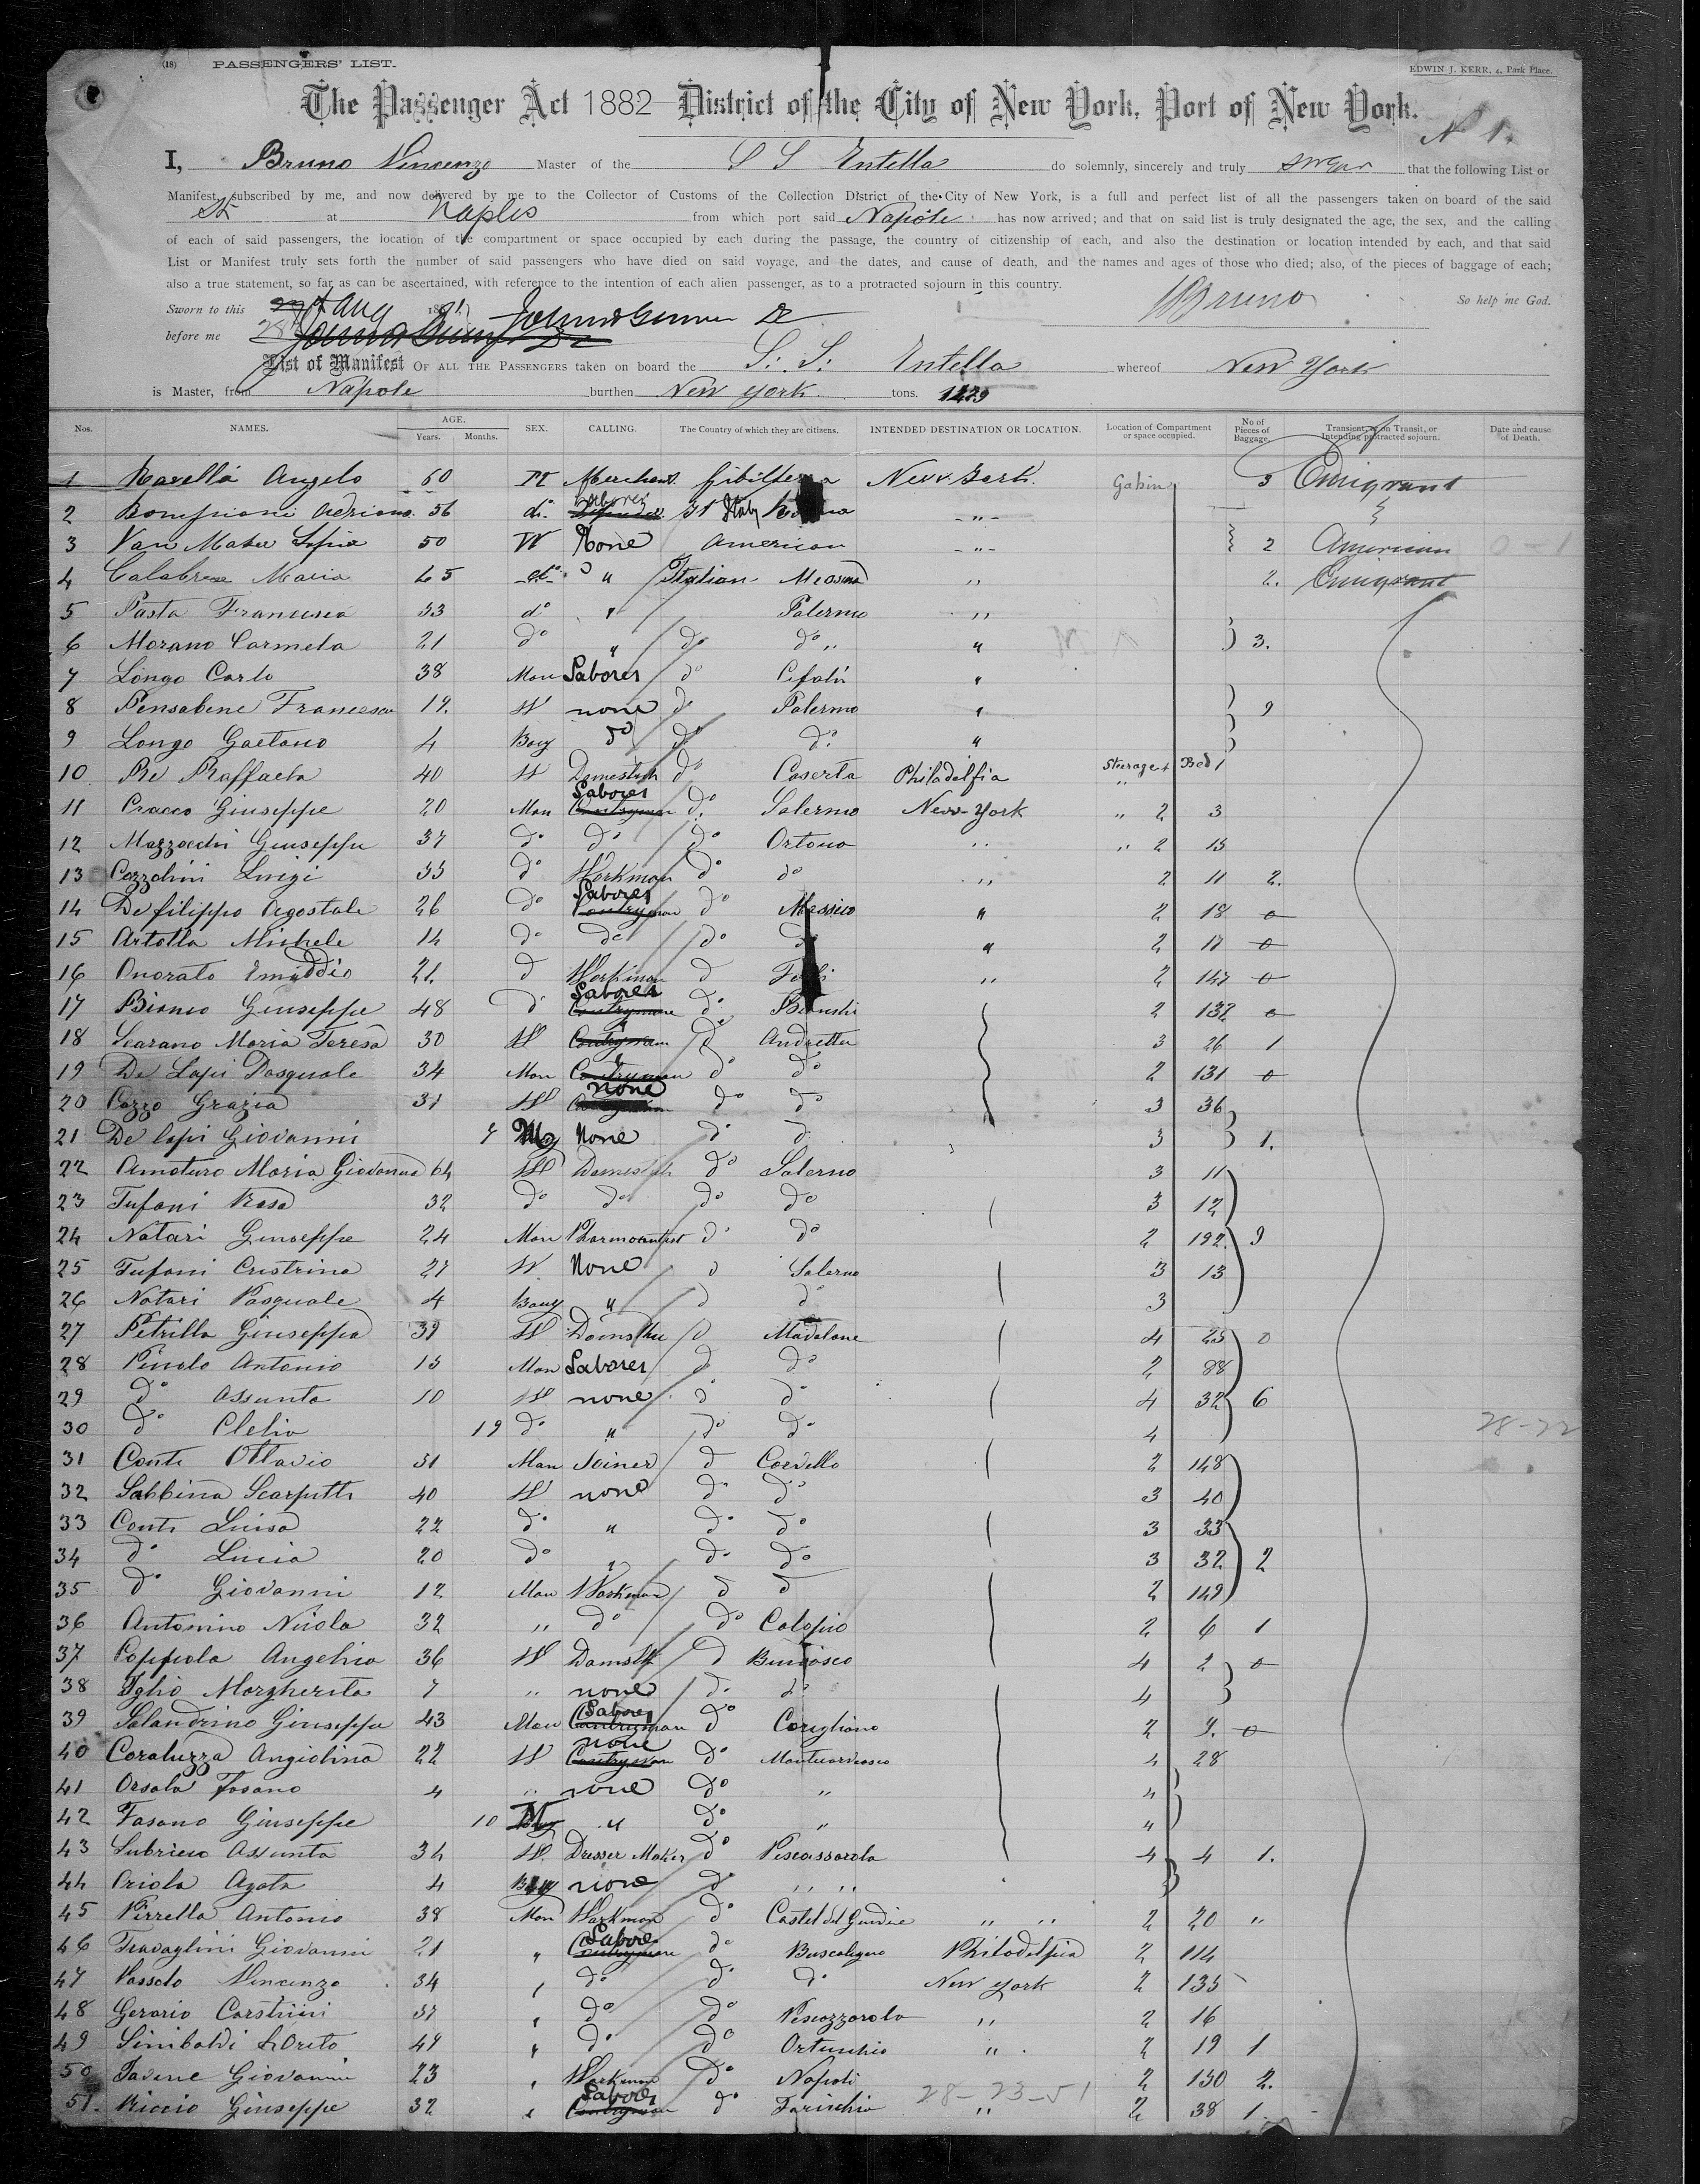 (18) PASSENGERS' LIST.
EDWIN J. KERR, 4, Park Place.
The Passenger Act 1882 District of the City of New York, Port of New York.
N 1.
I, Bruno Vincenzo Master of the S S Entella do solemnly, sincerely and truly swear that the following List or
Manifest, subscribed by me, and now delivered by me to the Collector of Customs of the Collection District of the City of New York, is a full and perfect list of all the passengers taken on board of the said
at Naples from which port said Napole has now arrived; and that on said list is truly designated the age, the sex, and the calling
of each of said passengers, the location of the compartment or space occupied by each during the passage, the country of citizenship of each, and also the destination or location intended by each, and that said
List or Manifest truly sets forth the number of said passengers who have died on said voyage, and the dates, and cause of death, and the names and ages of those who died; also, of the pieces of baggage of each;
also a true statement, so far as can be ascertained, with reference to the intention of each alien passenger, as to a protracted sojourn in this country.
Bruno So help me God.
Sworn to this Aug 1891
before me 28
List of Manifest OF ALL THE PASSENGERS taken on board the S. S. Entella whereof New York
is Master, from Napole burthen New York tons. 1429
Nos. NAMES. AGE. Years. Months. SEX. CALLING. The Country of which they are citizens. INTENDED DESTINATION OR LOCATION. Location of Compartment or space occupied. No of Pieces of Baggage. Transient, or on Transit, or Intending protracted sojourn. Date and cause of Death.
1 Ravella Angelo 60 M Merchant Gibilterra New-York. Gabin 3 Emigrant
2 Bompiani Adriano 56 do Laborer Italy -"-
3 Van Mater Sofia 50 W None American -"- 2 American 0-1
4 Calabrese Maria 45 do " Italian Messina " 2. Emigrant
5 Pasta Francesca 33 do " Palermo "
6 Morano Carmela 21 do " do do " "
7 Longo Carlo 38 Man Laborer do Cefalù " 3.
8 Pensabene Francesca 19. W none do Palermo " 9
9 Longo Gaetano 4 Boy do do do "
10 Re Raffaela 40 W Domestich do Caserta Philadelfia Steerage 4 Bed 1
11 Cracco Giuseppe 20 Man Laborer Contryman do Salerno New-York " 2 3
12 Mazzocchi Giuseppe 37 do do do Ortona " " 2 15
13 Cozzolini Luigi 33 do Workman do do " 2 11 2.
14 De filippo Agostale 26 do Laborer Contryman do Messico " 2 18 0
15 Artolla Michele 14 do do do d " 2 17 0
16 Onorato Emiddio 21. d Workman d " 2 147 0
17 Bianco Giuseppe 48 d Laborer Contryman do 2 132 0
18 Scarano Maria Teresa 30 W Contryman " d Andretta 3 26 1
19 De Lapi Pasquale 34 Man Contryman do do 2 131 0
20 Cozzo Grazia 31 W none do do 3 36
21 De lapi Giovanni 7 None do d 3 1.
22 Amaturo Maria Giovanna 64 W Domestich do Salerno 3 11
23 Tufani Rosa 32 do do do do 3 12
24 Natari Giuseppe 24 Man Pharmountist do do 2 192 9
25 Tufani Cristina 27 W None d Salerno 3 13
26 Natari Pasquale 4 Bouy " d do 3
27 Petrilla Giuseppa 39 W Domsthe d Madalone 4 25 0
28 Pinolo Antonio 15 Man Laborer do do 2 88
29 do Assunta 10 W none d do 4 32 6
30 do Clelia 19 do " do do 4 28-22
31 Conti Ottavio 51 Man Joiner d Corvello 2 148
32 Sabbina Scarputti 40 W none do do 3 40
33 Conti Luisa 22 do " do do 3 33
34 do Lucia 20 do " do do 3 32 2
35 do Giovanni 12 Man Workman d d 2 149
36 Antonino Nicola 32 " do do Calopio 2 6 1
37 Coppola Angelica 36 W Domsth d 4 2 0
38 Iglio Margherita 7 " none do do 4
39 Salandrino Giuseppe 43 Man Laborer Contryman do Corigliano 2 9. 0
40 Coraluzza Angiolina 22 W none Contryman do 4 28
41 Orsola Fasano 4 " none do " 4
42 Fasano Giuseppe 10 M " do " "
43 Lubrico Assunta 34 W. Dresser Maker do Pescassorola 4 4 1.
44 Oriola Agata 4 none do " "
45 Pirrella Antonio 38 Man Workman do Castel del Giudice " " 2 20 "
46 Travaglini Giovanni 21 " Labore Contryman do Philadelpia 2 114
47 Vassolo Vincenzo 34 " do do do New York 2 135
48 Gerario Carstrini 37 " do do Pescozzorola " 2 16
49 Sinibaldi LOreto 41 " do do Ortuchio " 2 19 1
50 Tavene Giovanni 23 " Workman do Napoli 2 130 2.
28-23-51
51. Riccio Giuseppe 32 " Laborer Contryman do " 2 38 1